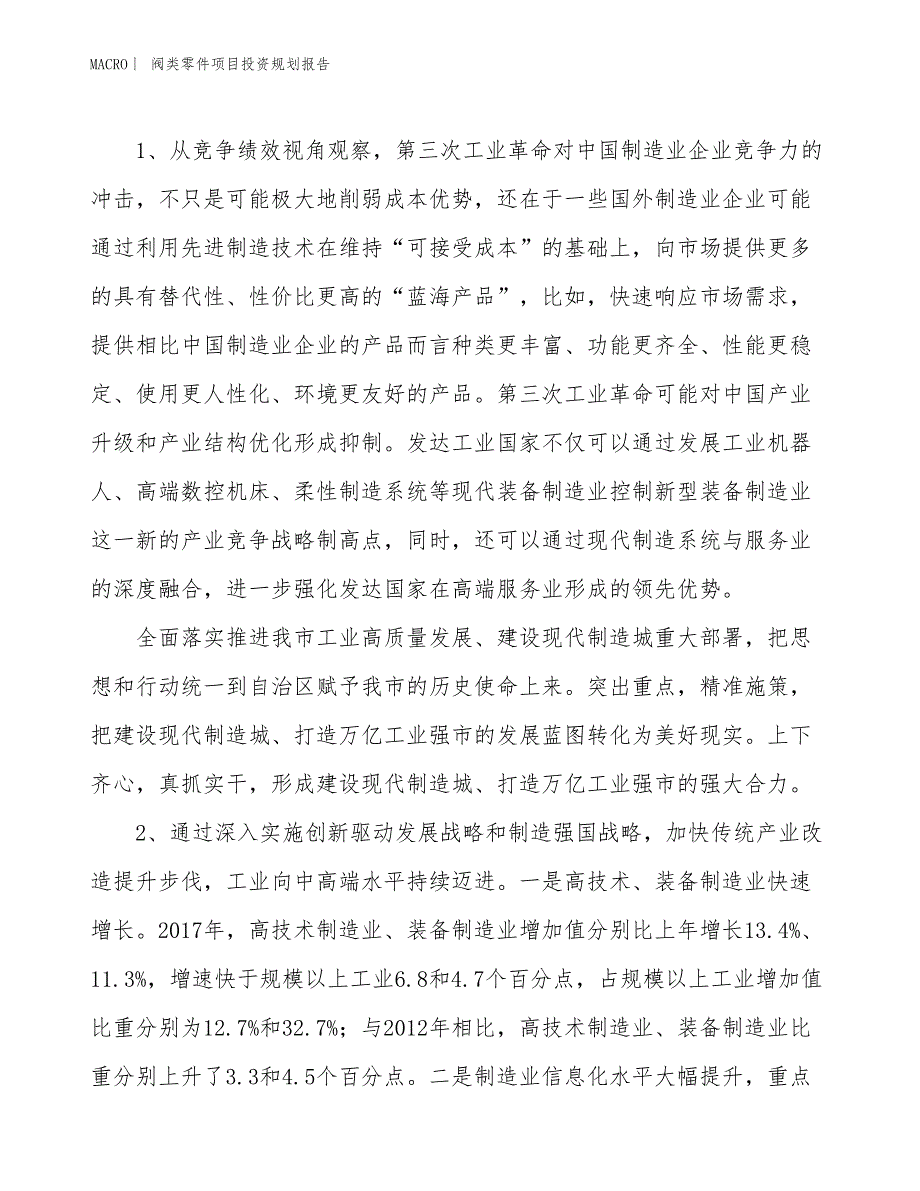 MACRO｜ 阀类零件项目投资规划报告
1、从竞争绩效视角观察，第三次工业革命对中国制造业企业竞争力的
冲击，不只是可能极大地削弱成本优势，还在于一些国外制造业企业可能
通过利用先进制造技术在维持“可接受成本”的基础上，向市场提供更多
的具有替代性、性价比更高的“蓝海产品”，比如，快速响应市场需求，
提供相比中国制造业企业的产品而言种类更丰富、功能更齐全、性能更稳
定、使用更人性化、环境更友好的产品。第三次工业革命可能对中国产业
升级和产业结构优化形成抑制。发达工业国家不仅可以通过发展工业机器
人、高端数控机床、柔性制造系统等现代装备制造业控制新型装备制造业
这一新的产业竞争战略制高点，同时，还可以通过现代制造系统与服务业
的深度融合，进一步强化发达国家在高端服务业形成的领先优势。
全面落实推进我市工业高质量发展、建设现代制造城重大部署，把思
想和行动统一到自治区赋予我市的历史使命上来。突出重点，精准施策，
把建设现代制造城、打造万亿工业强市的发展蓝图转化为美好现实。上下
齐心，真抓实干，形成建设现代制造城、打造万亿工业强市的强大合力。
2、通过深入实施创新驱动发展战略和制造强国战略，加快传统产业改
造提升步伐，工业向中高端水平持续迈进。一是高技术、装备制造业快速
增长。2017年，高技术制造业、装备制造业增加值分别比上年增长13.4%、
11.3%，增速快于规模以上工业6.8和4.7个百分点，占规模以上工业增加值
比重分别为12.7%和32.7%；与2012年相比，高技术制造业、装备制造业比
重分别上升了3.3和4.5个百分点。二是制造业信息化水平大幅提升，重点